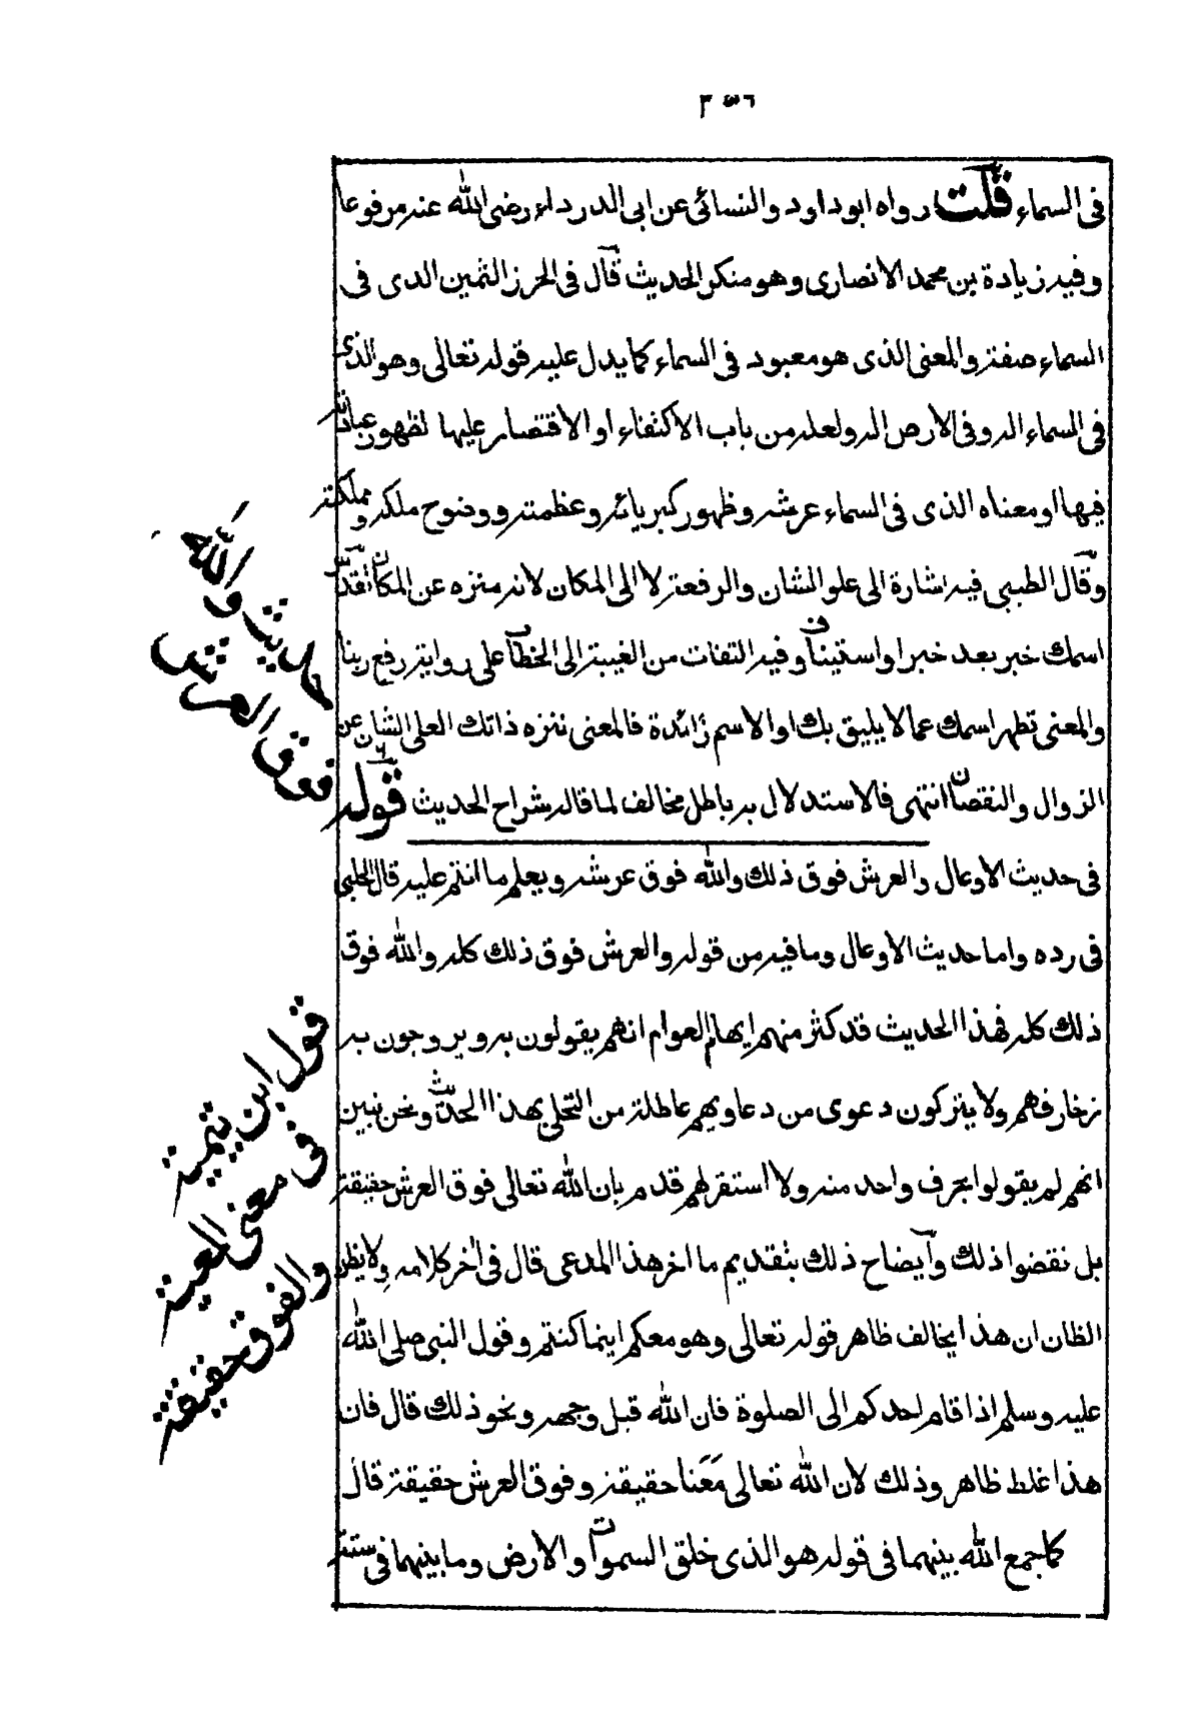 ٣٥٦
فى السماء قلت رواه ابوداود والنسائى عن ابى الدرداء رضى الله عنه مرفوعا
وفيه زيادة بن محمد الانصارى وهو منكر الحديث قال فى الحرز الثمين الدى فى
السماء صفته والمعنى الذى هو معبود فى السماء كما يدل عليه قوله تعالى وهو الذى
فى السماء اله وفى الارض اله ولعله من باب الاكتفاء او الاقتصار عليها لظهور عبادته
فيها او معناه الذى فى السماء عرشه وظهور كبريائه وعظمته ووضوح ملكه ومملكته
وقال الطيبى فيه اشارة الى علو الشان والرفعة لا الى المكان لانه منزه عن المكان تقدس
اسمك خبر بعد خبر او استيناف وفيه التفات من الغيبة الى الخطاب على رواية رفع ربنا
والمعنى تطهر اسمك عما لا يليق بك او الاسم زائدة فالمعنى ننزه ذاتك العلى الشان عن
الزوال والنقصان انتهى فالاستدلال به باطل مخالف لما قاله شراح الحديث قوله
فى حديث الاوعال والعرش فوق ذلك والله فوق عرشه ويعلم ما انتم عليه قال الحلبى
فى رده واما حديث الاوعال وما فيه من قوله والعرش فوق ذلك كله والله فوق
ذلك كله فهذا الحديث قد كثر منهم ايهام العوام انهم يقولون به ويروجون به
زخارفهم ولا يتركون دعوى من دعاويهم عاطلة من التحلى بهذا الحديث ونحن نبين
انهم لم يقولوا بحرف واحد منه ولا استقر لهم قدم بان الله تعالى فوق العرش حقيقة
بل نقضوا ذلك وايضاح ذلك بتقديم ما اخر هذا المدعى قال فى اخر كلامه ولا يظن
الظان ان هذا يخالف ظاهر قوله تعالى وهو معكم اينما كنتم وقول النبى صلى الله
عليه وسلم اذا قام احدكم الى الصلوة فان الله قبل وجهه ونحو ذلك قال فان
هذا غلط ظاهر وذلك لان الله تعالى مَعَنا حقيقة وفوق العرش حقيقة قال
كما جمع الله بينهما فى قوله هو الذى خلق السموات والارض وما بينهما فى ستة
حديث والله
فوق العرش
قول ابن تيمية
فى معنى المعية
والفوق حقيقة